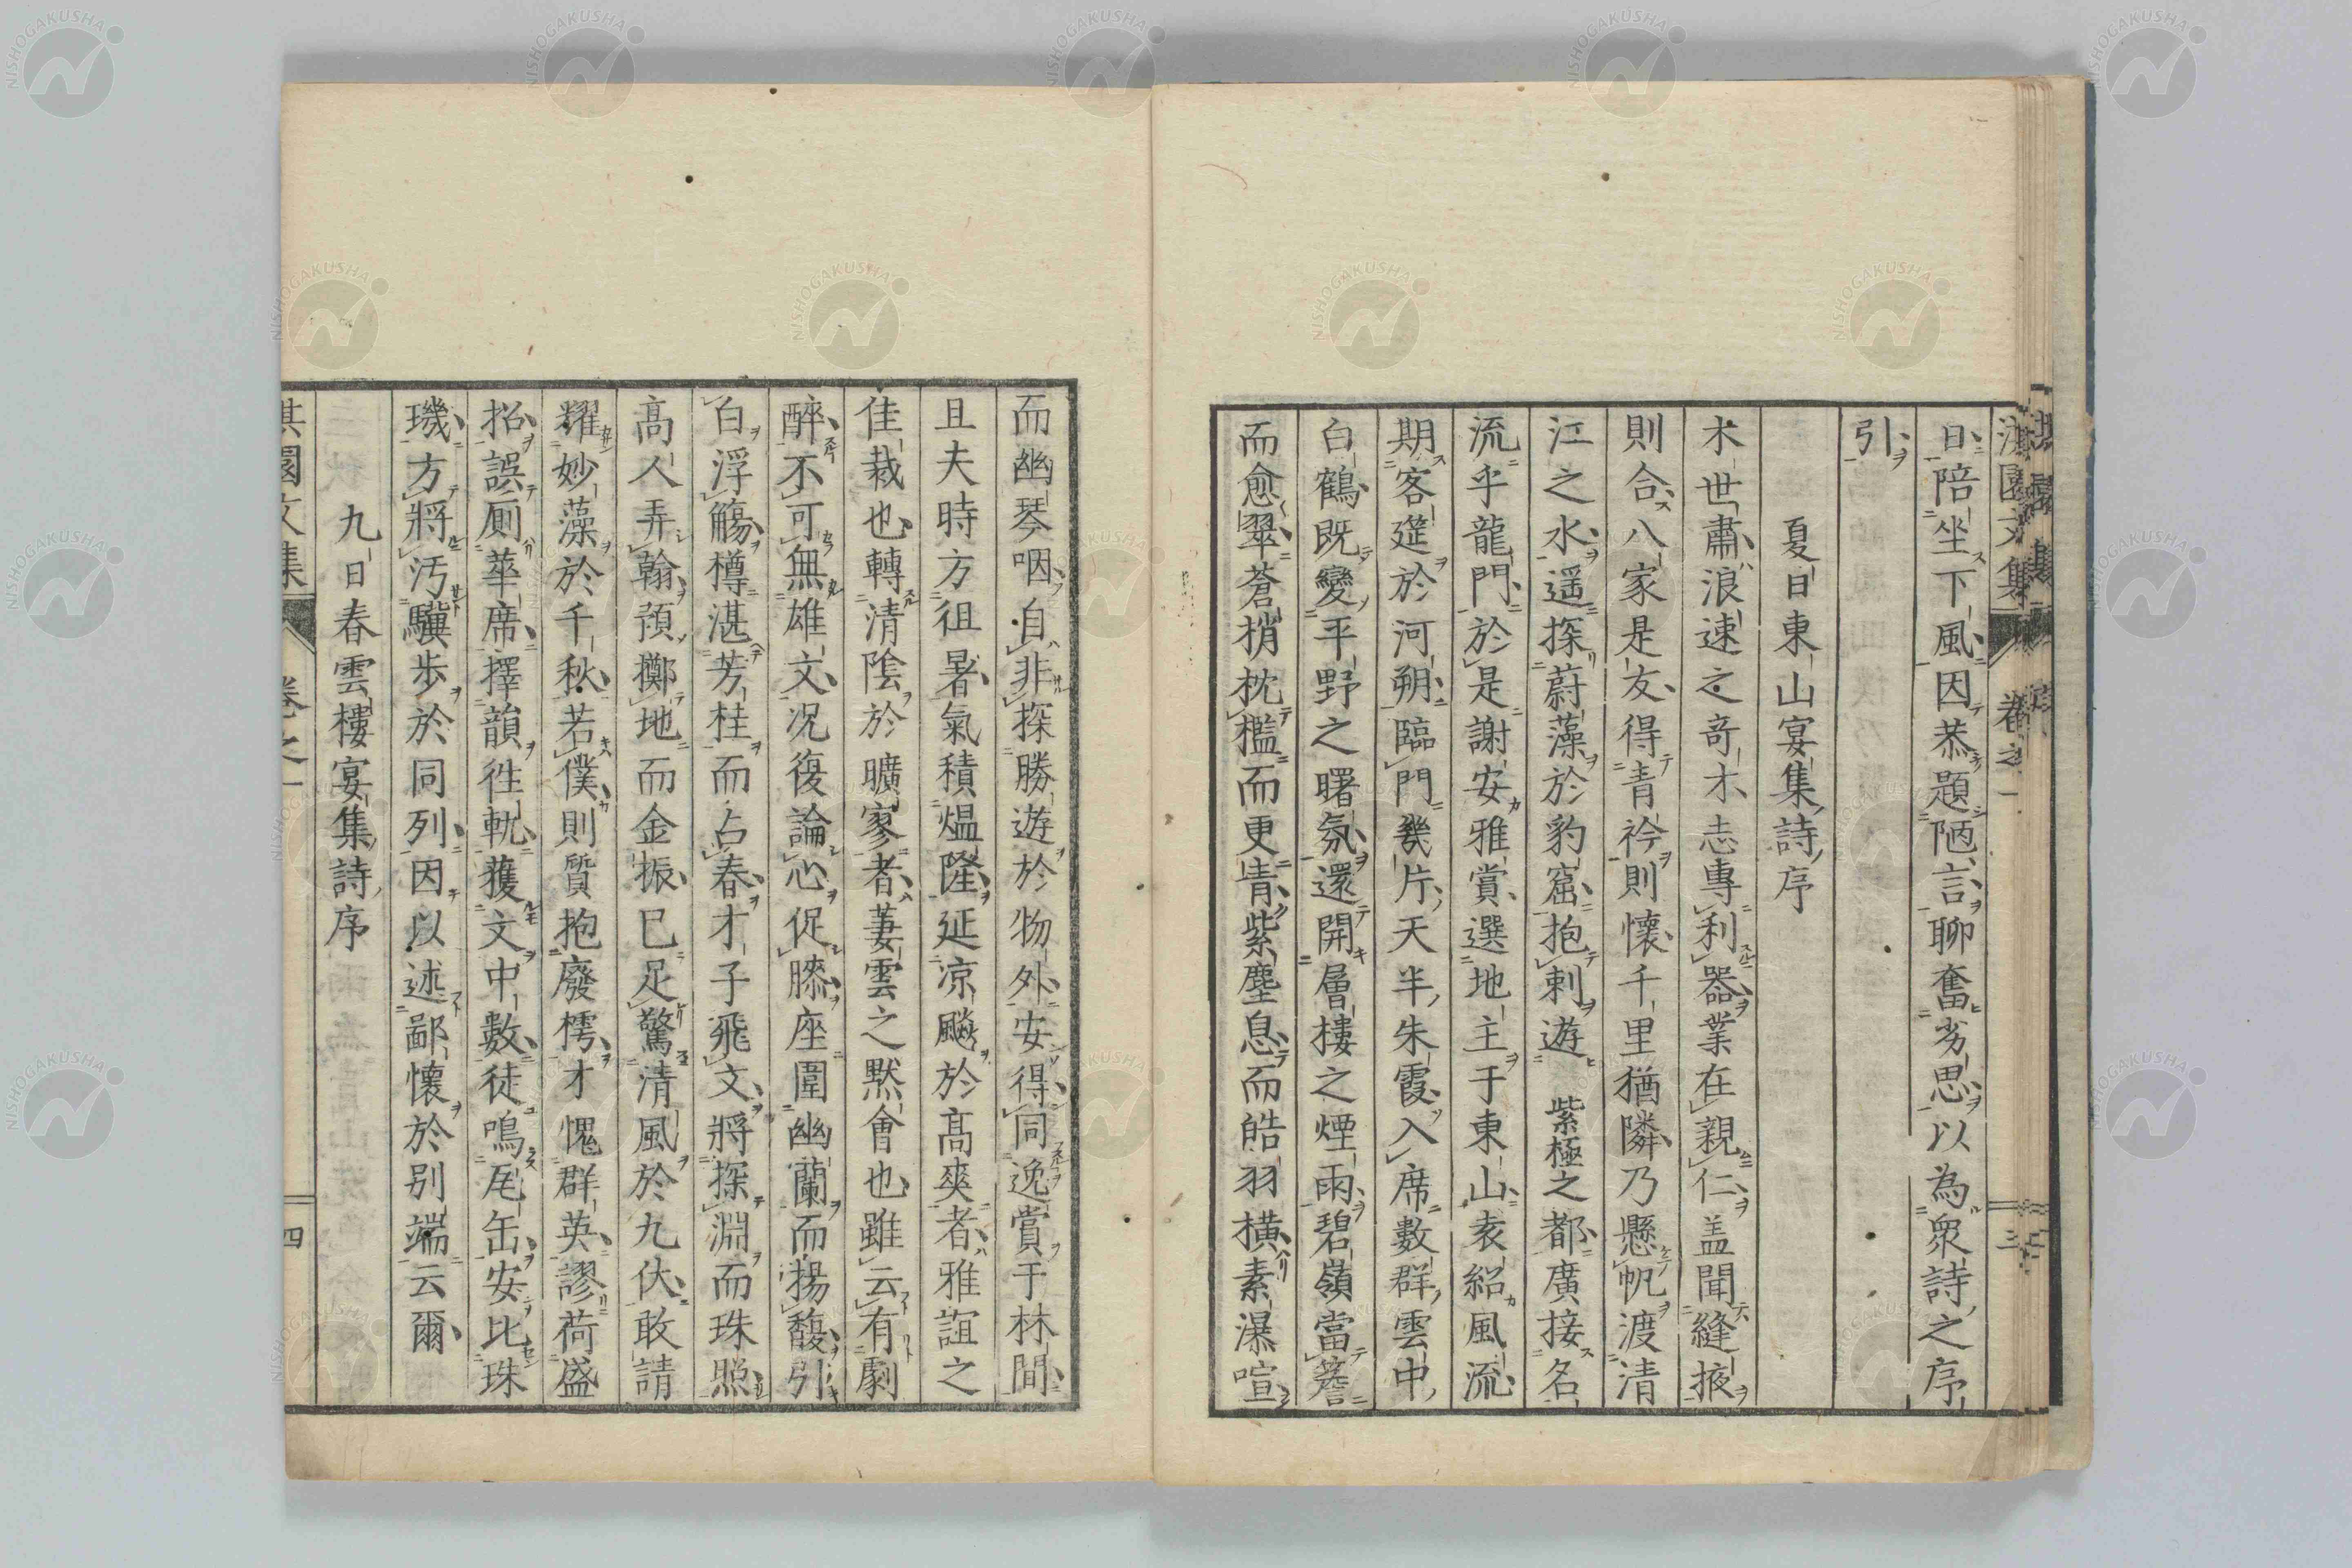 日陪坐下風因恭題陋言聊奮劣思以為衆詩之序
引
夏日東山宴集詩序
木世肅浪速之奇木志專利器業在親仁盖聞縫掖
則合八家是友得青衿則懷千里猶隣乃懸帆渡清
江之水遥探蔚藻於豹窟抱刺遊 紫極之都廣接名
流乎龍門於是謝安雅賞選地主于東山袁紹風流
期客筵於河朔臨門幾片天半朱霞入席數群雲中
白鶴既變平野之曙氛還開層樓之煙雨碧嶺當簷
而愈翠蒼梢枕檻而更青紫塵息而皓羽橫素瀑喧
而幽琴咽自非探勝遊於物外安得同逸賞于林間
且夫時方徂暑氣積熅隆延凉飈於高爽者雅誼之
佳裁也轉清陰於曠寥者萋雲之黙會也雖云有劇
醉不可無雄文况復論心促膝座圍幽蘭而揚馥引
白浮觴樽湛芳桂而占春才子飛文將探淵而珠照
高人弄翰預擲地而金振已足驚清風於九伏敢請
耀妙藻於千秋若僕則質抱廢樗才愧群英謬荷盛
招誤厠華席擇韻徃軌獲文中數徒鳴瓦缶安比珠
璣方將汚驥歩於同列因以述鄙懷於别端云爾
九日春雲樓宴集詩序
淇園文集 卷之一 四